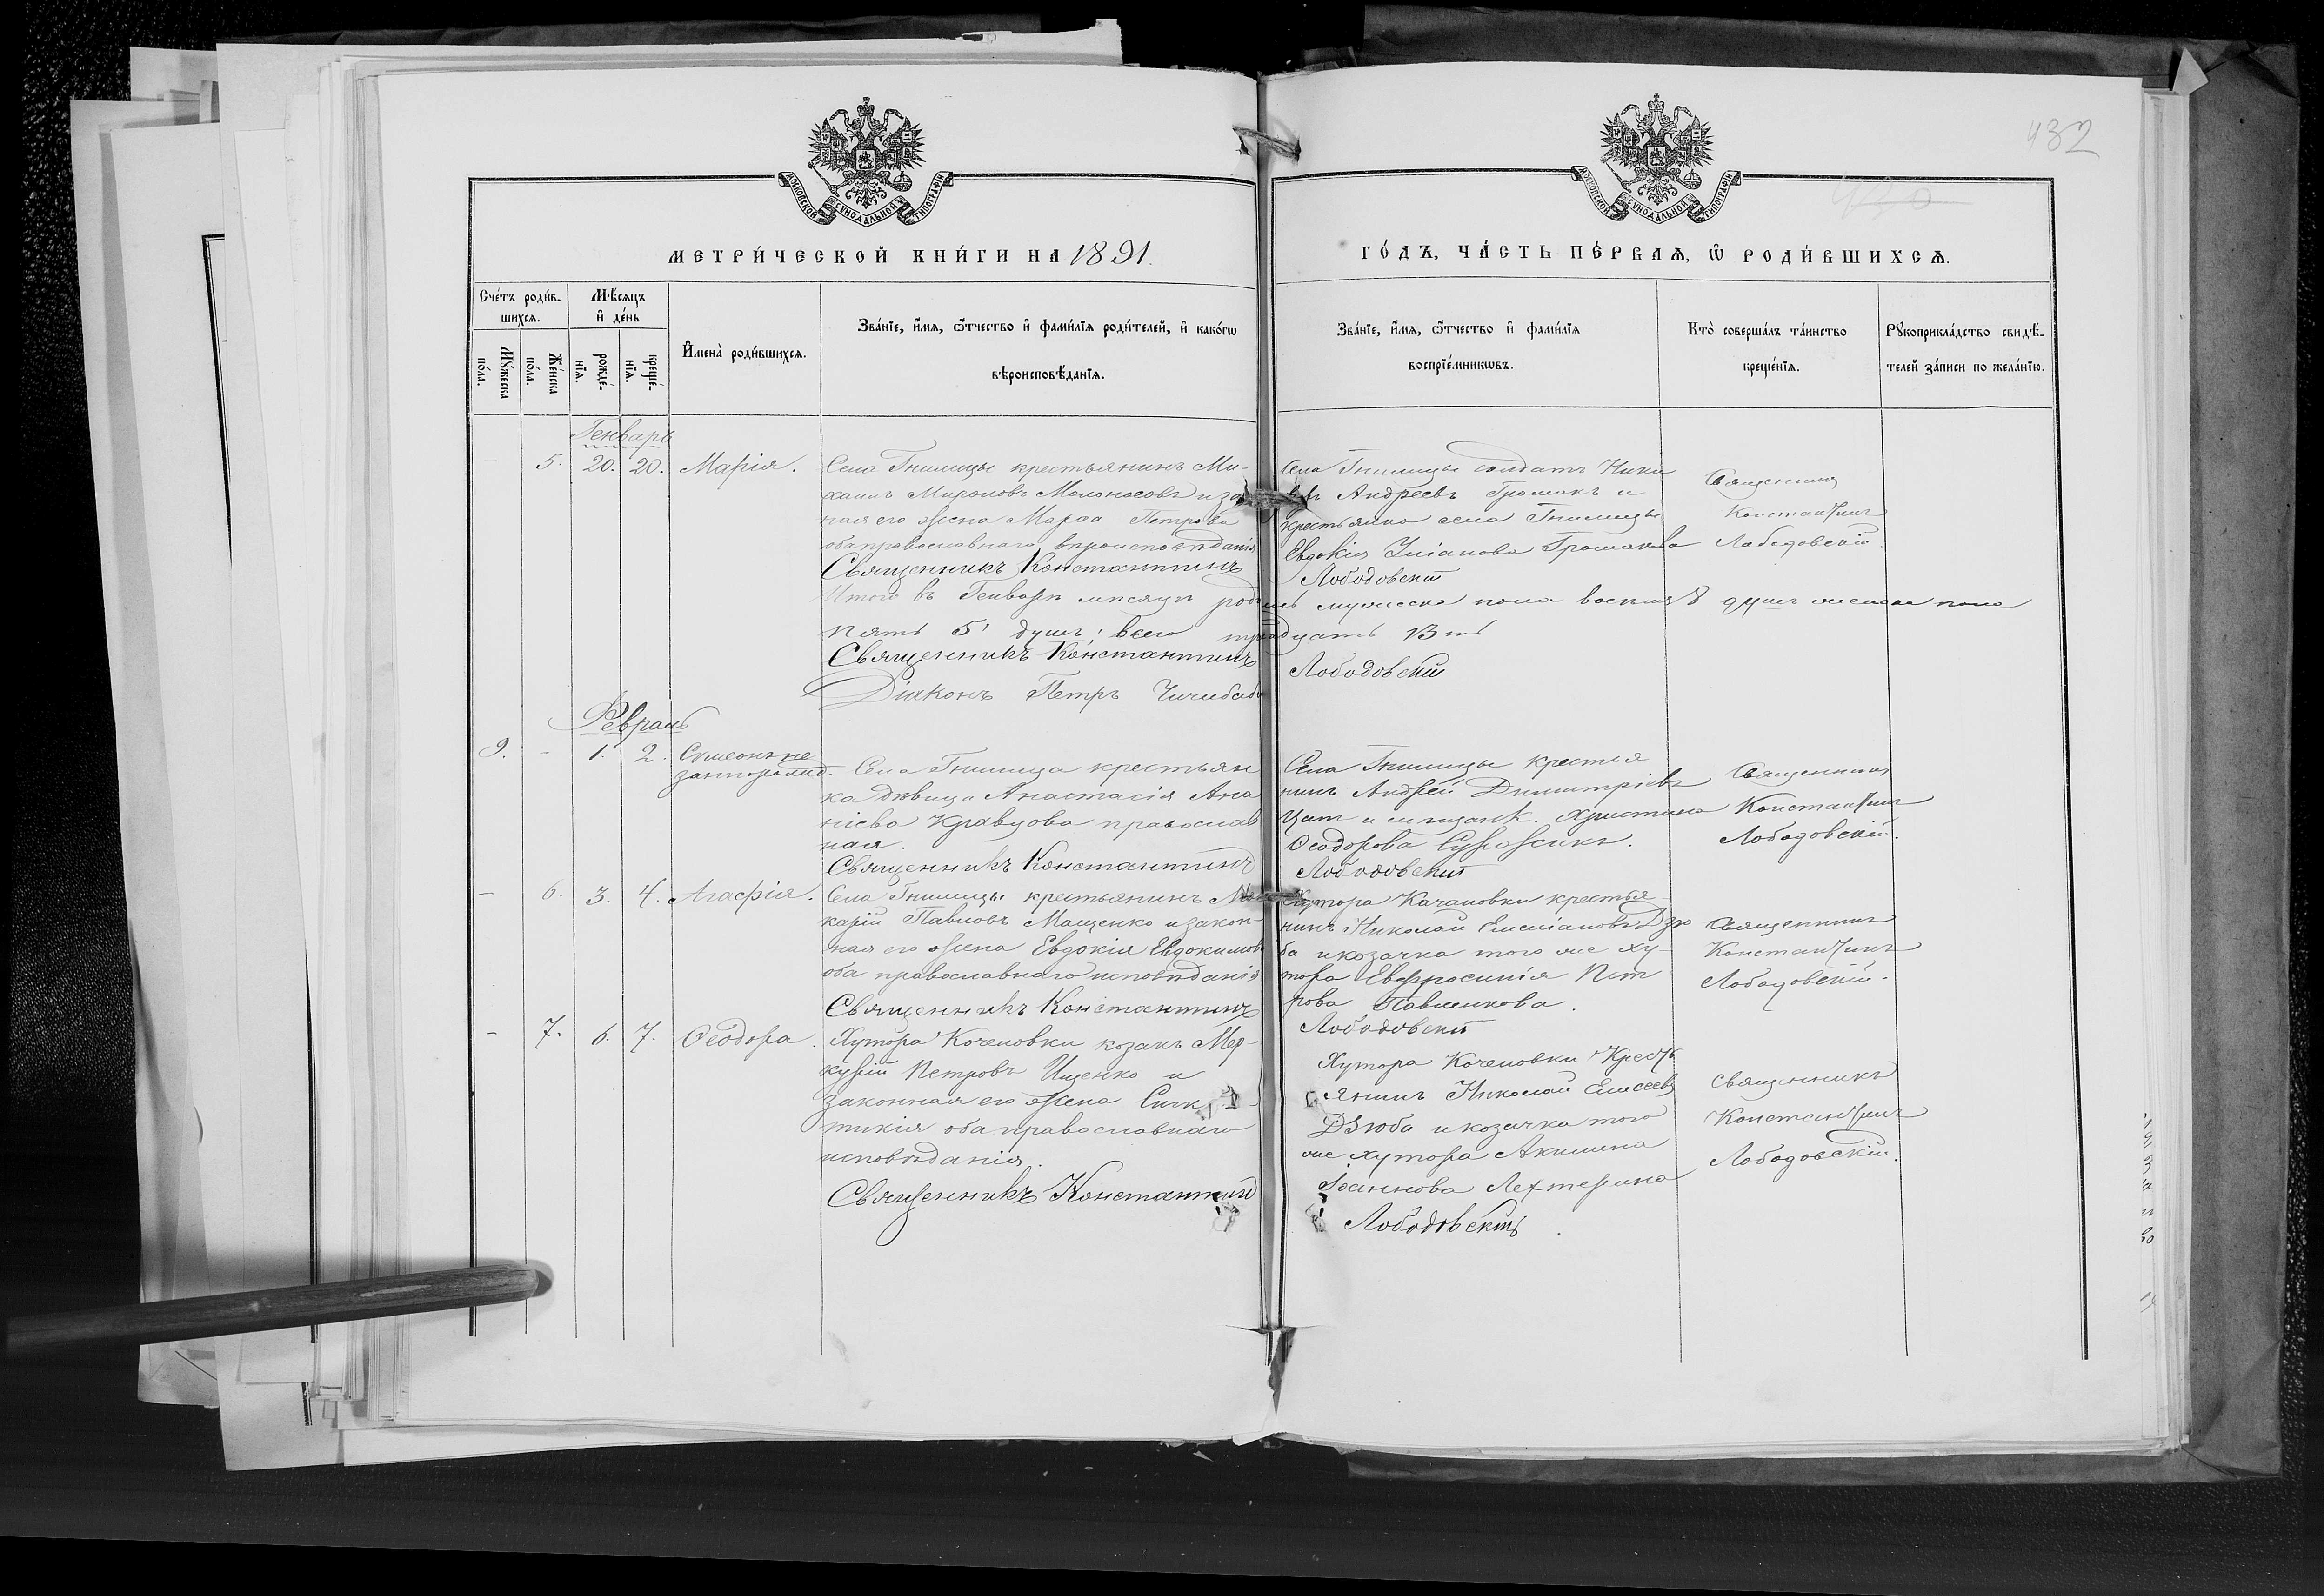 432
МОСКОВСКОЙ СѴНОДАЛЬНОЙ ТИПОГРАФІИ
МОСКОВСКОЙ СѴНОДАЛЬНОЙ ТИПОГРАФІИ
МЕТРИ́ЧЕСКОЙ КНИ́ГИ НА 1891.
ГО́ДЪ, ЧА́СТЬ ПЕ́РВАѦ, Ѡ҆ РОДИ́ВШИХСѦ.
Сче́тъ роди́в-
шихсѧ.
Мꙋ́жеска
по́ла.
Же́нска
по́ла.
Мѣ́сѧцъ
и҆ де́нь
рожде́-
нїѧ.
креще́-
нїѧ.
И҆мена̀ роди́вшихсѧ.
Зва́нїе, и҆́мѧ, ѻ҆́тчество и҆ фами́лїѧ роди́телей, и҆ како́гѡ
вѣроисповѣ́данїѧ.
Зва́нїе, и҆́мѧ, ѻ҆́тчество и҆ фами́лїѧ
воспрїе́мникѡвъ.
Кто̀ соверша́лъ та́инство
креще́нїѧ.
Рꙋкоприкла́дство свидѣ́-
телей за́писи по жела́нїю.
Генварь
5. 20. 20. Марія.
Села Гнилицы крестьянинъ Ми-
хаилъ Мироновъ Молоносовъ и зако
ная его жена Марѳа Петрова
оба православнаго вѣроисповѣданія
Священникъ Константинъ
Села Гнилицы солдатъ Ники
Андреевъ и
крестьянка села Гнилицы
Евдокія
Лободовскій
Священникъ
Константинъ
Лободовскій
Итого въ Генварѣ мѣсяцѣ родилось мужеска пола восемь 8 душъ женска пола
пять 5 душъ; всего тринадцать 13
Священникъ Константинъ Лободовскій
Діаконъ Петръ Чичибаб
Февраль
9. - 1. 2. Сѵмеонъ не
законорожд.
Села Гнилица крестьян
ка дѣвица Анастасія Ана
ніева Кравцова православ
ная.
Священникъ Константинъ
Села Гнилицы крестья
нинъ Андрей Димитріевъ
и Христина
Ѳеодорова
Лободовскій
Священникъ
Константинъ
Лободовскій.
- 6. 3. 4. Агафія.
Села Гнилицы крестьянинъ Ма
карій Павловъ Мащенко и закон
ная его жена Евдокія Евдокимова
оба православнаго исповѣданія
Священникъ Константинъ
Хутора Качановки крестья
нинъ Николай Дзю
ба и козачка того же ху-
тора Евфросинія Пет
рова Павленкова.
Лободовскій
Священникъ
Константинъ
Лободовскій.
- 7. 6. 7. Ѳеодора.
Хутора Коченовки козакъ Мер-
курій Петровъ Ищенко и
законная его жена Синк
ликія оба православнаго
исповѣданія.
Священникъ Константинъ
Хутора Коченовки Крест
янинъ Николай Елисеевъ
Дзюба и козачка того
же хутора Акилина
Іоаннова Лехтерина
Лободовскій
Священникъ
Константинъ
Лободовскій.